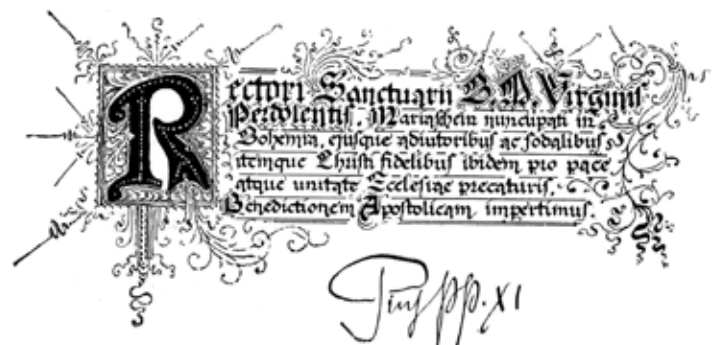 Rectori Sanctuarii B. M. Virginis
Perdolentis, Mariaschein nuncupati in
Bohemia, ejusque adiutoribus ac sodalibus
itemque Christi fidelibus ibidem pro pace
atque unitate Ecclesiae precaturis,
Benedictionem Apostolicam impertimus.
Pius PP. XI